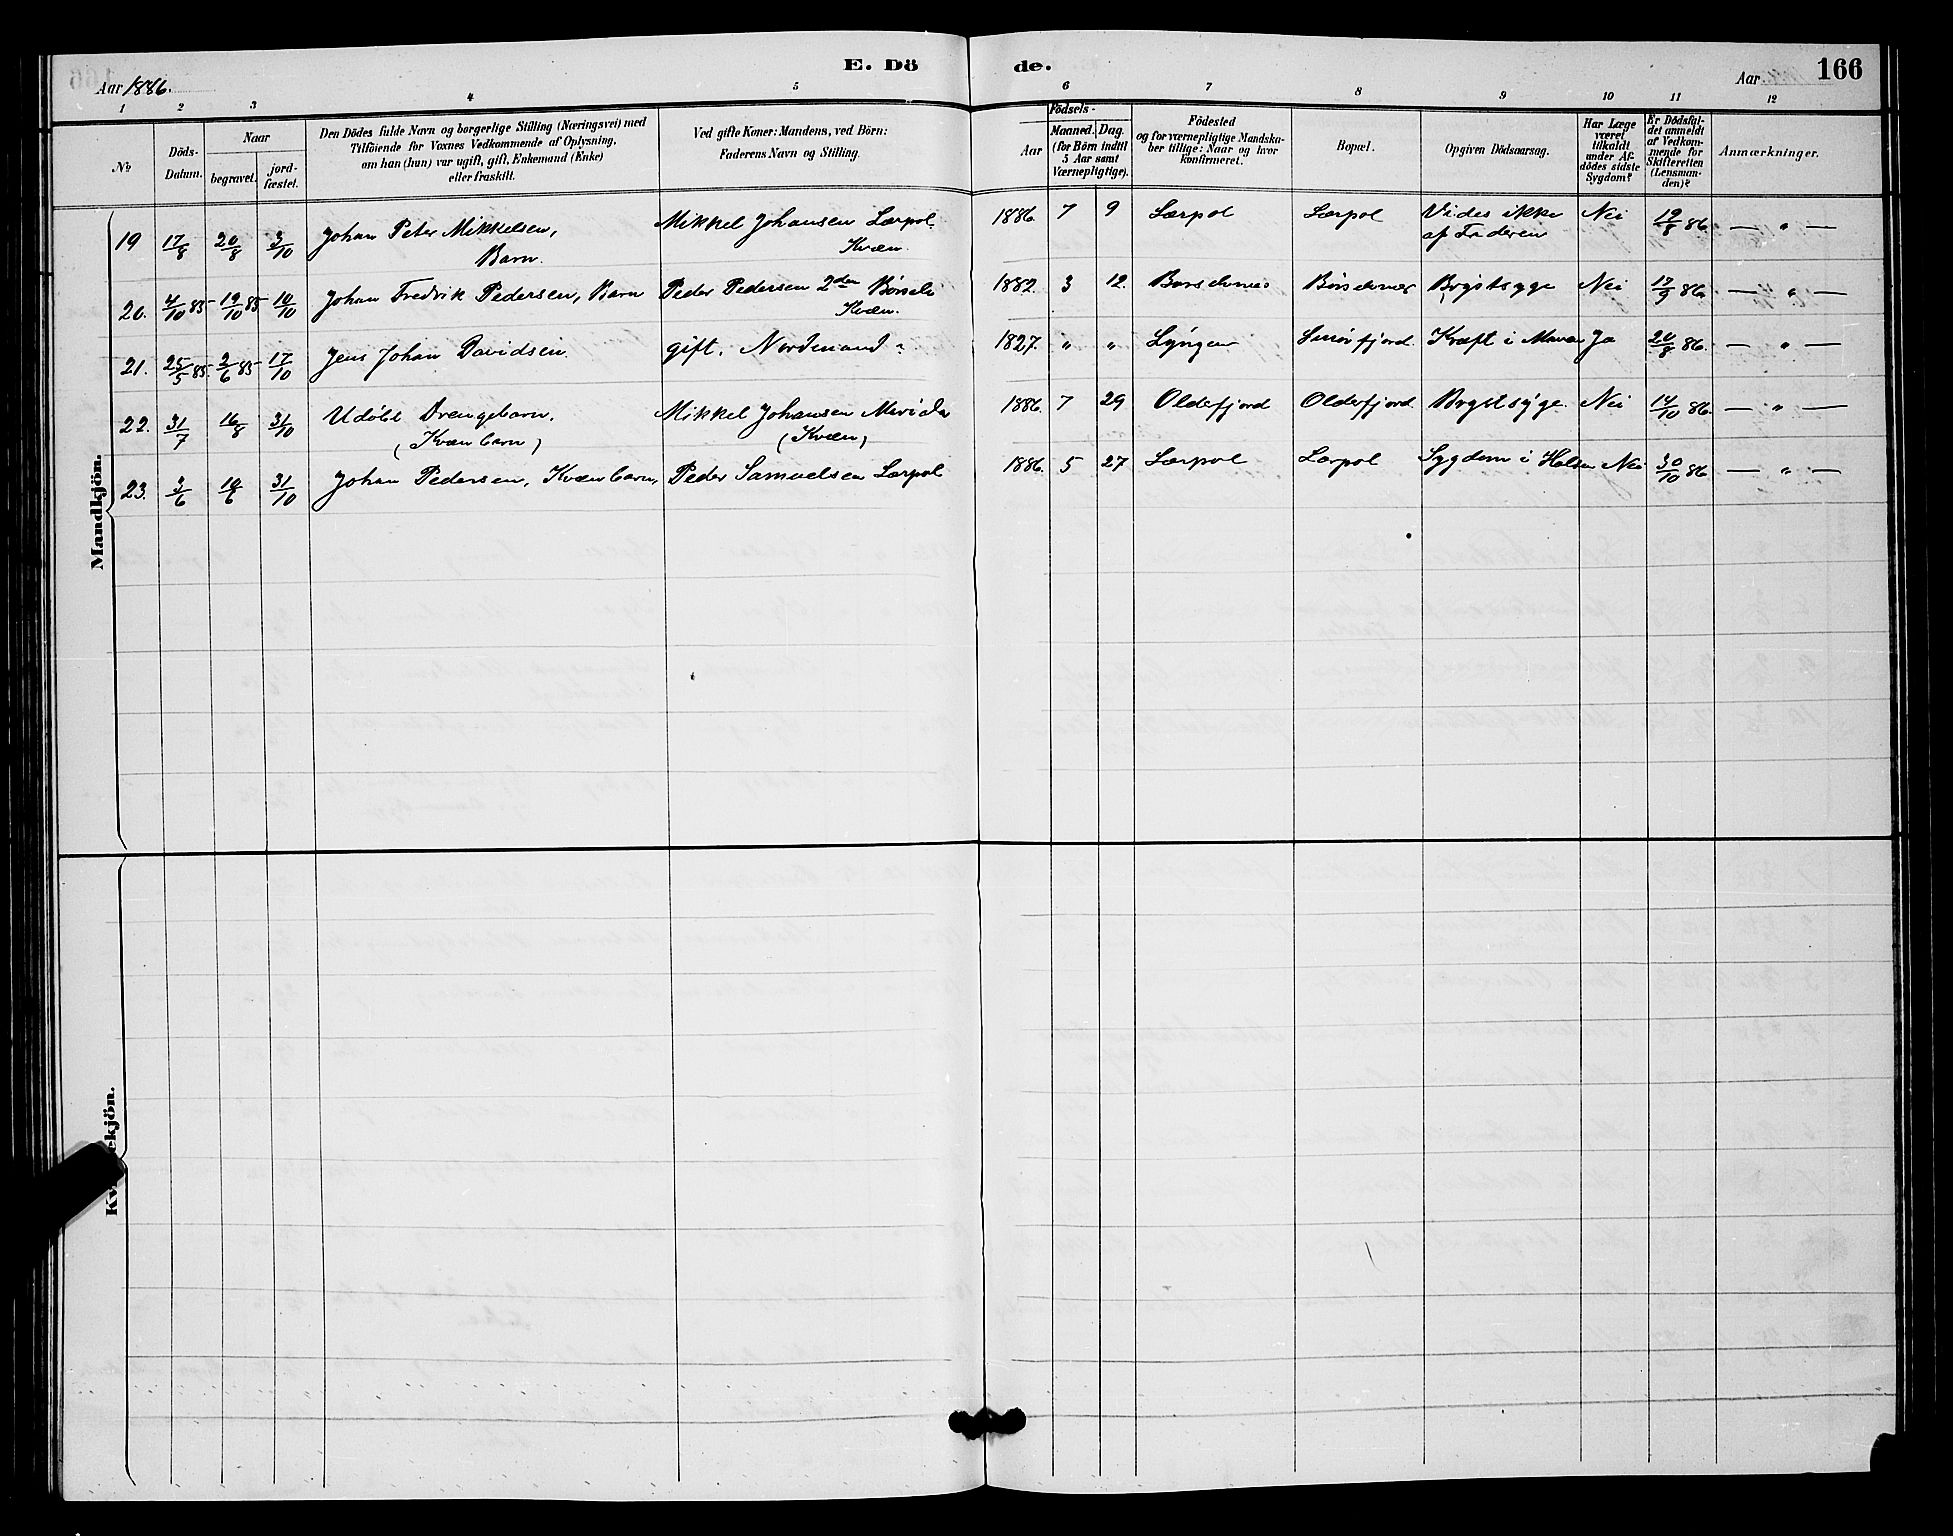 E. Dö de.
Aar 1886.
Aar
166
1 2 3 4 5 6 7 8 9 10 11 12
No
Döds-Datum.
Naar
begravet.
jord-fæstet.
Den Dödes fulde Navn og borgerlige Stilling (Næringsvei) med
Tilföiende for Voxnes Vedkommende af Oplysning,
om han (hun) var ugift, gift, Enkemand (Enke)
eller fraskilt.
Ved gifte Koner: Mandens, ved Börn:
Faderens Navn og Stilling.
Födsels-
Aar
Maaned. Dag.
(for Börn indtil
5 Aar samt
Værnepligtige).
Födested
og for værnepligtige Mandska-
ber tillige: Naar og hvor
konfirmeret.
Bopæl.
Opgiven Dödsaarsag.
Har Læge
været
tilkaldt
under Af-
dödes sidste
Sygdom?
Er Dödsfal-
det anmeldt
af Vedkom-
mende for
Skifteretten
(Lensman-
den)?
Anmærkninger.
Mandkjön.
19 17/8 20/8 3/10 Johan Peter Mikkelsen, Mikkel Johansen Lærpol 1886 7 9 Lærpol Lærpol Vides ikke Nei 19/8 86 — " —
Barn. Kvæn. af Faderen
20. 4/10 85 19/10 85 10/10 Johan Fredrik Pedersen, Barn Peder Pedersen 2den 1882 3 12 Børselvnes Børselvnes Brystsyge Nei 17/9 86 — " —
Kvæn.
21. 25/5 85. 2/6 85 17/10 Jens Johan Davidsen gift. Nordmand 1827. " " Lyngen Smörfjord Kræft i Maven Ja 20/8 86. — " —
22. 31/7 16/8 31/10 Udöbt Drengebarn, Mikkel Johansen 1886. 7 29 Oldefjord Oldefjord Brystsyge Nei 14/10 86. — " —
(Kvænbarn) (Kvæn)
23. 3/6 19/6 31/10 Johan Pedersen, Kvænbarn, Peder Samuelsen Lærpol 1886. 5 27 Lærpol Lærpol Sygdom i Halsen Nei 30/10 86 — " —